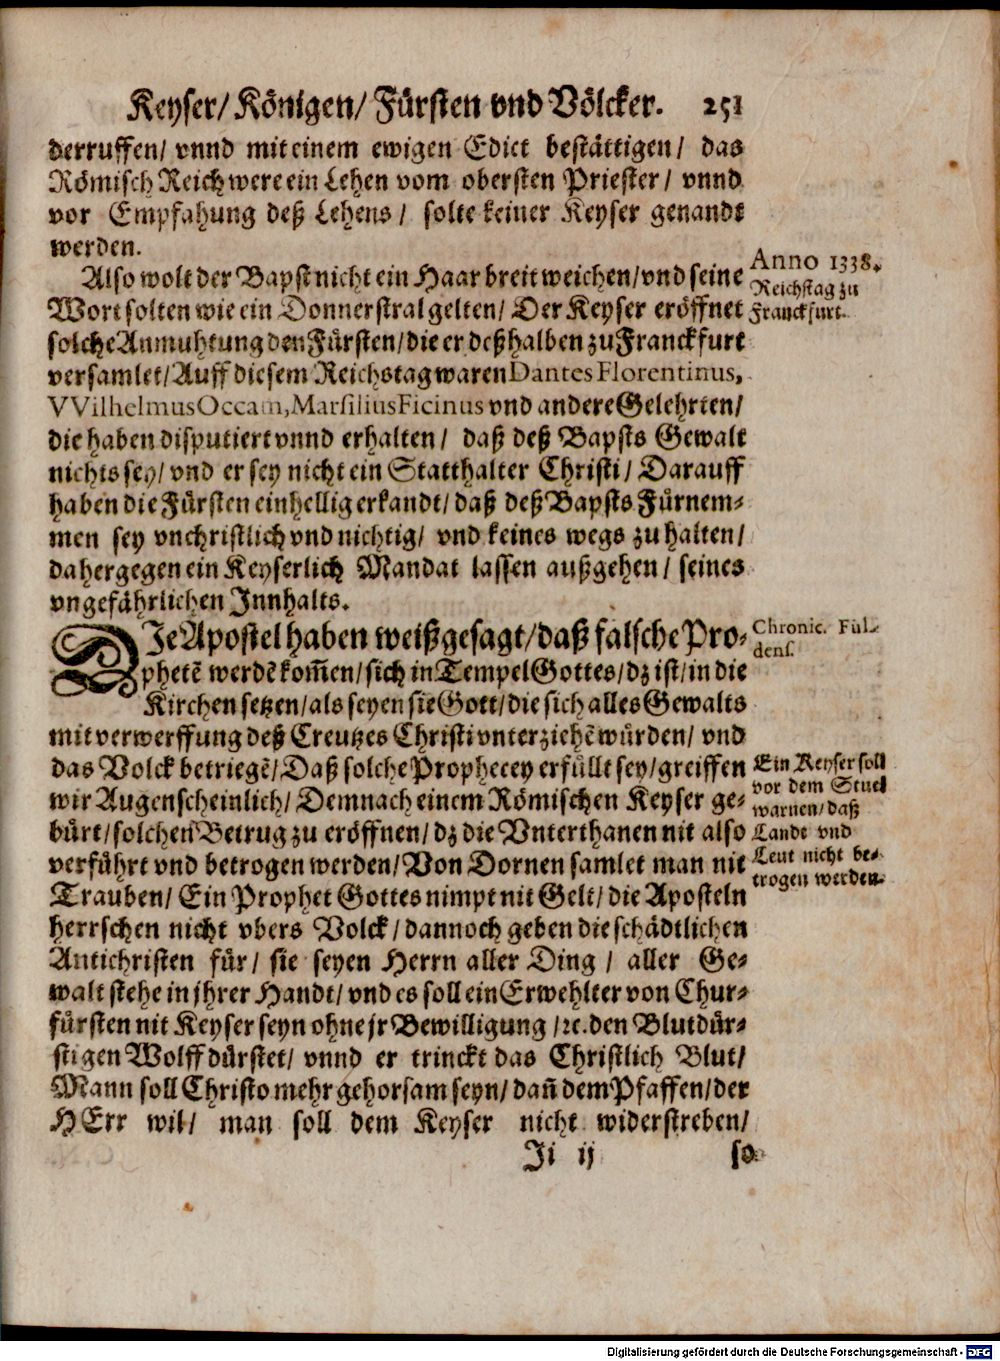 Keyser/ Königen/ Fürsten vnd Völcker. 251
derruffen/ vnnd mit einem ewigen Edict bestättigen/ das
Römisch Reich were ein Lehen vom obersten Priester/ vnnd
vor Empfahung deß Lehens/ solte keiner Keyser genandt
werden.
Also wolt der Bapst nicht ein Haar breit weichen/ vnd seine
Wort solten wie ein Donnerstral gelten/ Der Keyser eröffnet
solche Anmuhtung den Fürsten/ die er deßhalben zu Franckfurt
versamlet/ Auff diesem Reichstag waren Dantes Florentinus,
VVilhelmus Occam, Marsilius Ficinus vnd andere Gelehrten/
die haben disputiert vnnd erhalten/ daß deß Bapsts Gewalt
nichts sey/ vnd er sey nicht ein Statthalter Christi/ Darauff
haben die Fürsten einhellig erkandt/ daß deß Bapsts Fürnem-
men sey vnchristlich vnd nichtig/ vnd keines wegs zu halten/
da hergegen ein Keyserlich Mandat lassen außgehen/ seines
vngefährlichen Innhalts.
Anno 1338.
Reichstag zu
Franckfurt.
DIe Apostel haben weißgesagt/ daß falsche Pro-
phetē werdē kom̄en/ sich in Tempel Gottes/ dz ist/ in die
Kirchen setzen/ als seyen sie Gott/ die sich alles Gewalts
mit verwerffung deß Creutzes Christi vnterziehē würden/ vnd
das Volck betriegē/ Daß solche Prophecey erfüllt sey/ greiffen
wir Augenscheinlich/ Demnach einem Römischen Keyser ge-
bürt/ solchen Betrug zu eröffnen/ dz die Vnterthanen nit also
verführt vnd betrogen werden/ Von Dornen samlet man nit
Trauben/ Ein Prophet Gottes nimpt nit Gelt/ die Aposteln
herrschen nicht vbers Volck/ dannoch geben die schädtlichen
Antichristen für/ sie seyen Herrn aller Ding/ aller Ge-
walt stehe in jhrer Handt/ vnd es soll ein Erwehlter von Chur-
fürsten nit Keyser seyn ohne jr Bewilligung/ ꝛc. den Blutdür-
stigen Wolff dürstet/ vnnd er trinckt das Christlich Blut/
Mann soll Christo mehr gehorsam seyn/ dan̄ dem Pfaffen/ der
HErr wil/ man soll dem Keyser nicht widerstreben/
Chronic. Ful-
dens.
Ein Keyser soll
vor dem Stuel
warnen/ daß
Landt vnd
Leut nicht be-
trogen werden.
Ji ij so
Digitalisierung gefördert durch die Deutsche Forschungsgemeinschaft - DFG